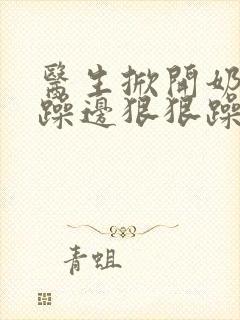 醫生掀開奶
躁邊狠狠躁
青蛆